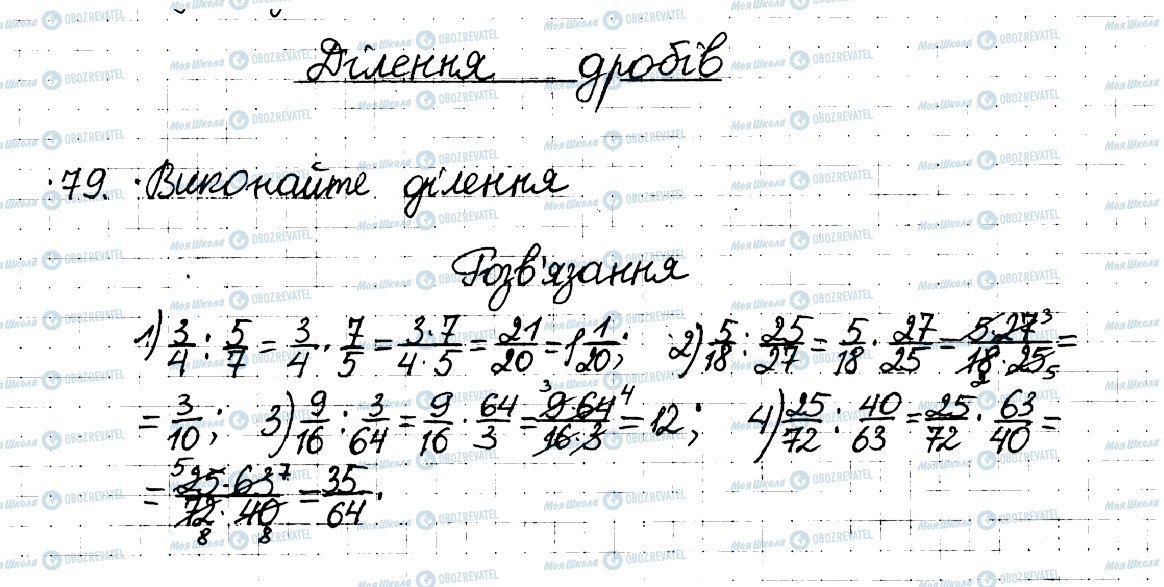 Ділення дробів
79. Виконайте ділення
Розв'язання
1) 3/4 : 5/7 = 3/4 · 7/5 = 3·7/4·5 = 21/20 = 1 1/20; 2) 5/18 : 25/27 = 5/18 · 27/25 = 5·27 3/18·25 2 5 =
= 3/10; 3) 9/16 : 3/64 = 9/16 · 64/3 = 3 9·64 4/16·3 = 12; 4) 25/72 : 40/63 = 25/72 · 63/40 =
= 5 25·63 7/72·40 8 8 = 35/64.
МояШкола OBOZREVATEL